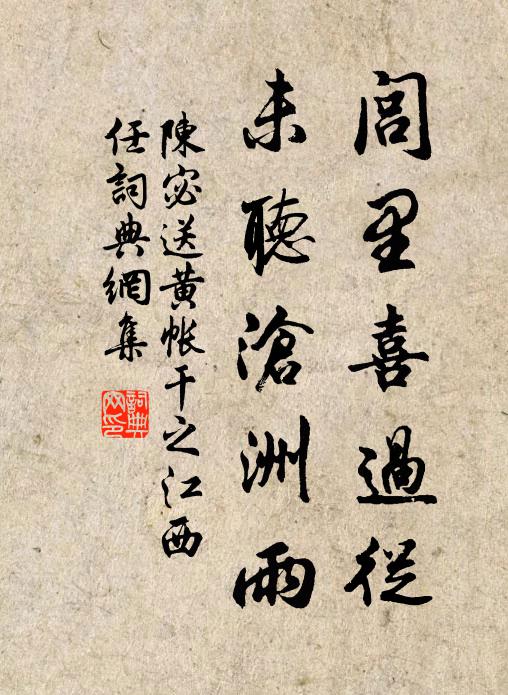 閭里喜過從
未聽滄洲雨
陳宓送黃帐干之江西
任詞典網集
詞典網印